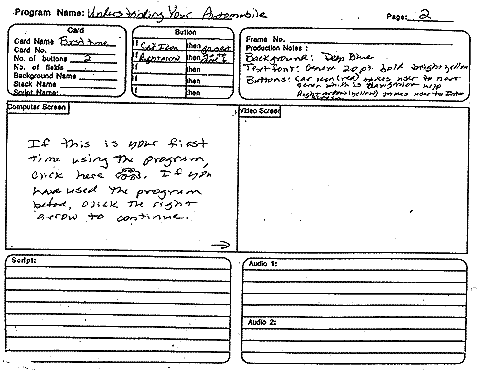 Program Name: Understanding Your Automobile
Page: 2
Card
Card Name First time
Card No.
No. of buttons 2
No. of fields
Background Name
Stack Name
Script Name:
Button
If Car Icon then
If Right arrow then
If then
If then
If then
Frame No.
Production Notes :
Background: Deep Blue
Text font: Geneva 20 pt. bold bright yellow
Buttons: Car icon (red) takes user to next
screen which is
Right arrow (yellow) takes user to
Computer Screen
If this is your first
time using the program,
click here . If you
have used the program
before, click the right
arrow to continue.
Video Screen
Script:
Audio 1:
Audio 2: